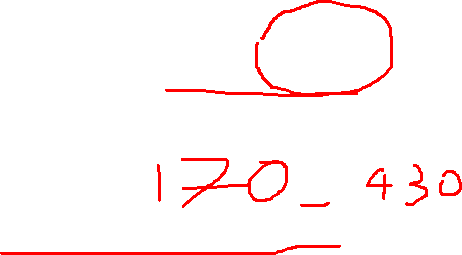 170_ 430